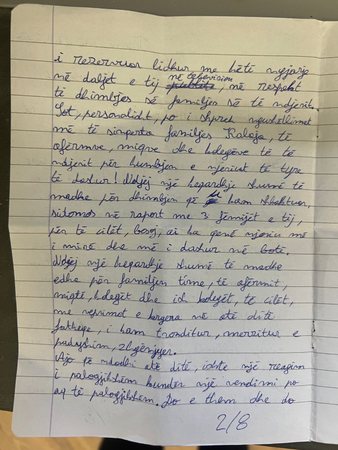 i rezervuar lidhur me këtë ngjarje
në daljet e tij në televizion, në respekt
të dhimbjes së familjes së të ndjerit.
Sot, personalisht, po i shpreh ngushëllimet
më të sinqerta familjes Kaloja, të
afërmve, miqve dhe kolegëve të të
ndjerit për humbjen e njeriut të tyre
të dashur! Ndjej një keqardhje shumë të
madhe për dhimbjen që kam shkaktuar,
sidomos në raport me 3 fëmijët e tij,
për të cilët, besoj, ai ka qenë njeriu më
i mirë dhe më i dashur në botë.
Ndjej një keqardhje shumë të madhe
edhe për familjen time, të afërmit,
miqtë, kolegët dhe ish kolegët, të cilët,
me veprimet e kryera në atë ditë
fatkeqe, i kam tronditur, mërzitur e
padyshim, zhgënjyer.
Ajo që ndodhi atë ditë, ishte një reagim
i paligjshëm kundër një vendimi po
aq të paligjshëm. Do e them dhe do
2/8